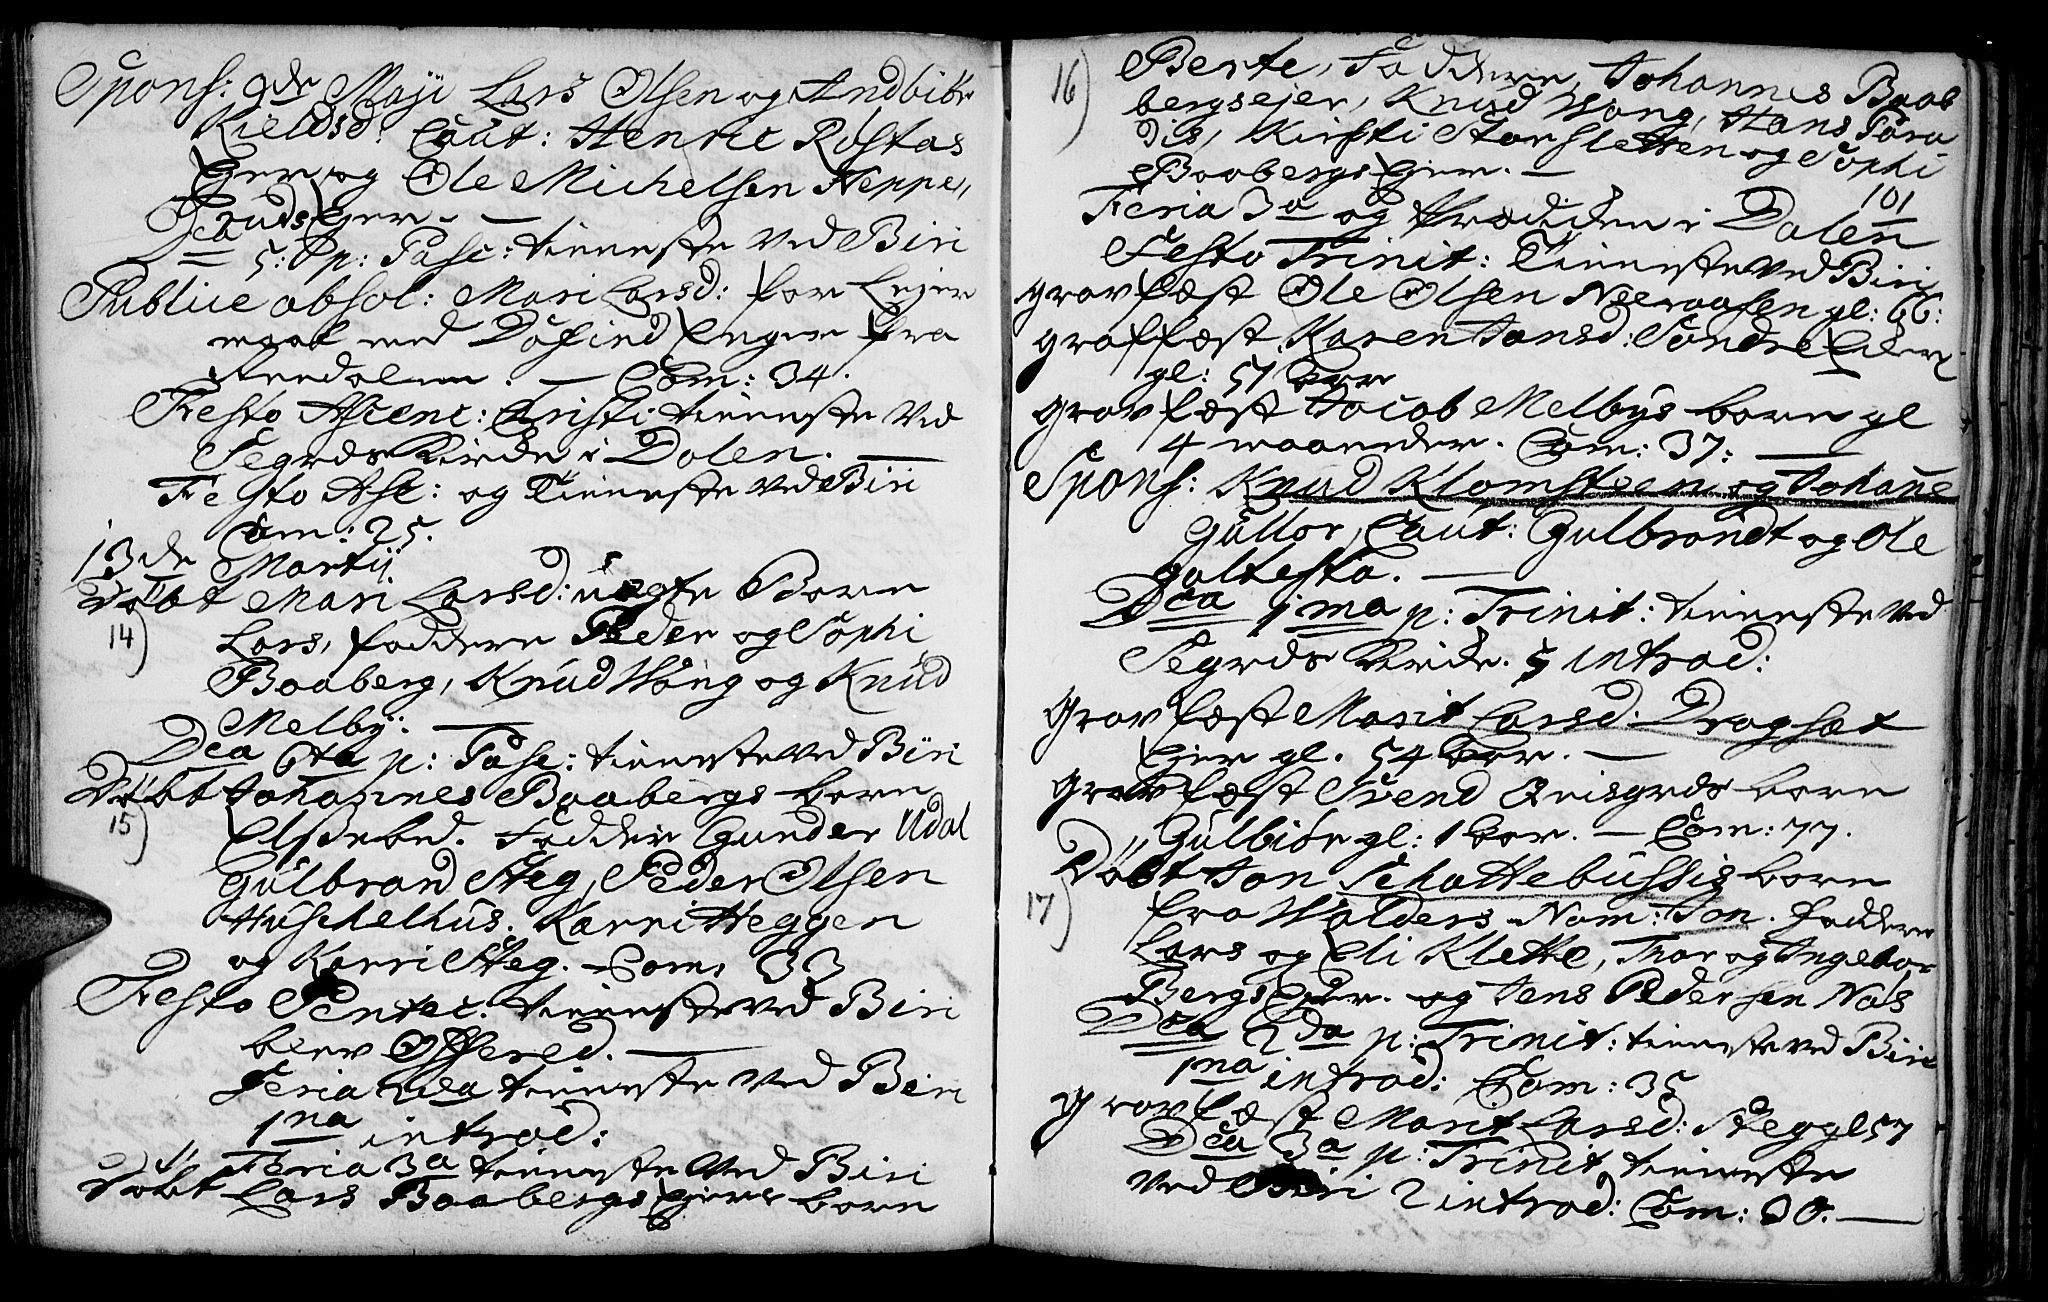 Spons: 9de Maji Lars Olsen og Andbiör
Kieldsd: Caut: Henric Rostas
Ejer og Ole Michelsen Neppe,,
ruds Ejer. —
Dca 5: p: Pasc: tienneste ved Biri
Publice absol: Mari Larsd: for Lejer
maal med Dofind Enger fra
. — Com: 34.
Festo Ascenc: Christi tienneste ved
Segrds Kirche i Dalen. —
Festo Asc: og Tienneste ved Biri
Com: 25.
13de Martij
Döbt Mari Larsd: uægte Born
14) Lars, faddere Peder og Sophi
Baaberg, Knud Wang og Knud
Melby. —
Dca 6ta p: Pasc: tienneste ved Biri
Döbt Johannes Baabergs born
15) Elssebed. Fadder Gunder Udal
Gulbrand Steg, Peder Olsen
Huschelhus. Karri Heggen
og Karri Steg. — Com: 33
Festo Pentec. tienneste ved Biri
blev Offered. —
Feria 2da tienneste ved Biri
1na introd:
Feria 3a tienneste ved Biri
Döbt Lars Baabergs Ejers born
16) Berte, Faddere, Johannes Baab
bergsejer, Knud Wang, Hans Para
dis, Kirsti Storsletten og Sophi
Baabergs Ejer. —
101
Feria 3a og i Dalen
Festo Trinit: Tienneste ved Biri
gravfæst Ole Olsen Neeraasen gl: 66:
graffæst Karen Jansd: Söndre
gl: 51 aar
gravfæst Jacob Melbys born gl
4 maaneder. Com: 37: —
Spons: Knud Klomsteen og Johane
Gullor, Caut: Gulbrandt og Ole
galtesta. —
Dca 1ma p: Trinit: tienneste ved
Segrds Kirche. 5 introd:
gravfæst Marit Larsd: Dragsæt
Ejer gl. 54 aar. —
gravfæst Svend Qvisgrds born
Gulbiör gl: 1 aar. — Com: 77.
Döbt Jon Schattebussis born
17) fra Walders Nom: Jon. faddere
Lars og Eli Klette, Thor og Ingebor
Bergs Ejer. og Jens Pedersen Nas
Dca 2da p: Trinit: tienneste ved Biri
1na introd: Com: 35
gravfæst Marit Larsd: Steg gl 57
Dca 3a p: Trinit. tienneste
ved Biri 2 introd: Com: 30. —